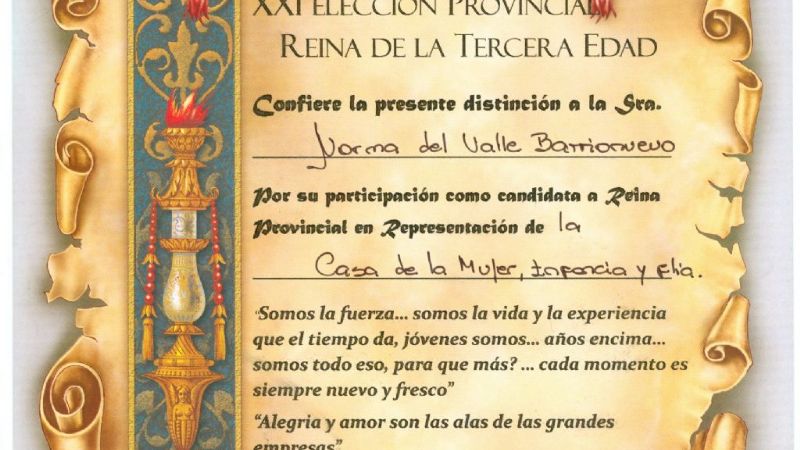 XXI ELECCIÓN PROVINCIAL
REINA DE LA TERCERA EDAD
Confiere la presente distinción a la Sra.
Norma del Valle Barrionuevo
Por su participación como candidata a Reina
Provincial en Representación de la
Casa de la Mujer, Infancia y flia.
"Somos la fuerza... somos la vida y la experiencia
que el tiempo da, jóvenes somos... años encima...
somos todo eso, para que más? ... cada momento es
siempre nuevo y fresco"
"Alegria y amor son las alas de las grandes
empresas"